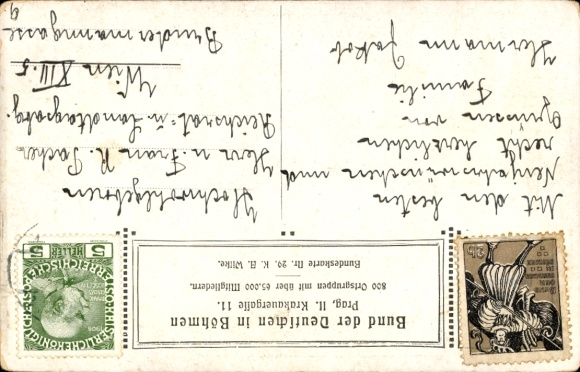 Bund der Deutschen in Böhmen
Prag, II. Krakauergasse 11.
800 Ortsgruppen mit über 65.000 Mitgliedern.
Bundeskarte Nr. 29. K. H. Wilke.
5 HELLER 5
KAISERLICHEKÖNIGLICHE ÖSTERREICHISCHE
1908
2h
Mit den besten
Neujahrswünschen und
recht herzlichen
Grüssen von
Familie
Hermann Jakob
Hochwohlgeboren
Herr u. Frau R. Pacher
Reichsrat= u. Landtagsabg.
Wien XIII.5